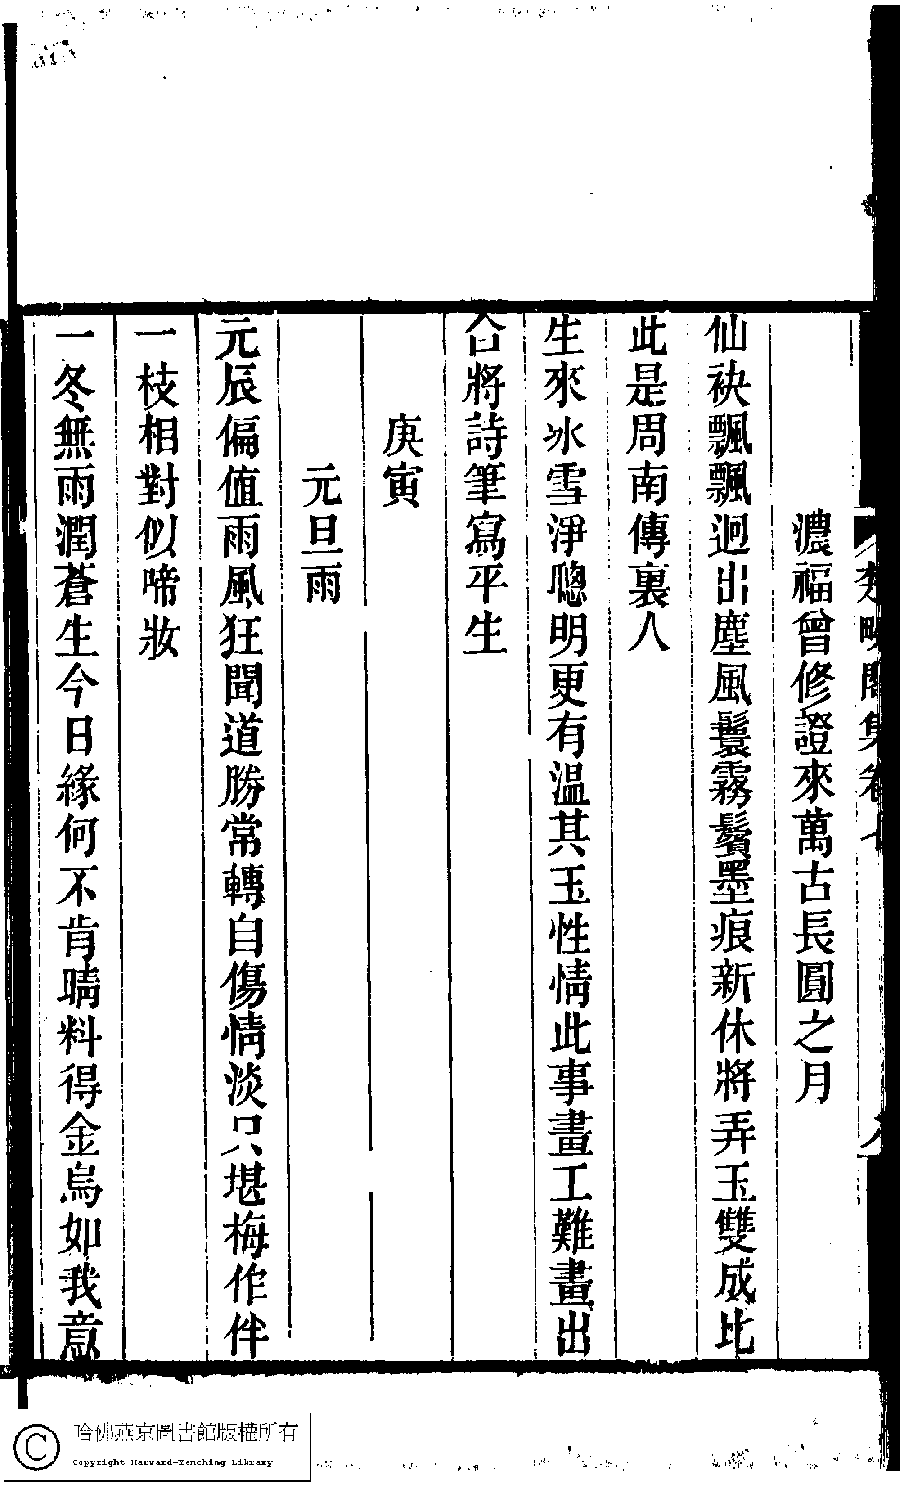 濃福曾修證來萬古長圓之月
仙袂飄飄迥出塵風鬟霧鬢墨痕新休將弄玉雙成比
此是周南傳裏人
生來冰雪淨聰明更有溫其玉性情此事畫工難畫出
合將詩筆寫平生
庚寅
元旦雨
元辰偏值雨風狂聞道勝常轉自傷情淡只堪梅作伴
一枝相對似啼妝
一冬無雨潤蒼生今日緣何不肯晴料得金烏如我意
哈佛燕京圖書館版權所有
Copyright Harvard-Yenching Library